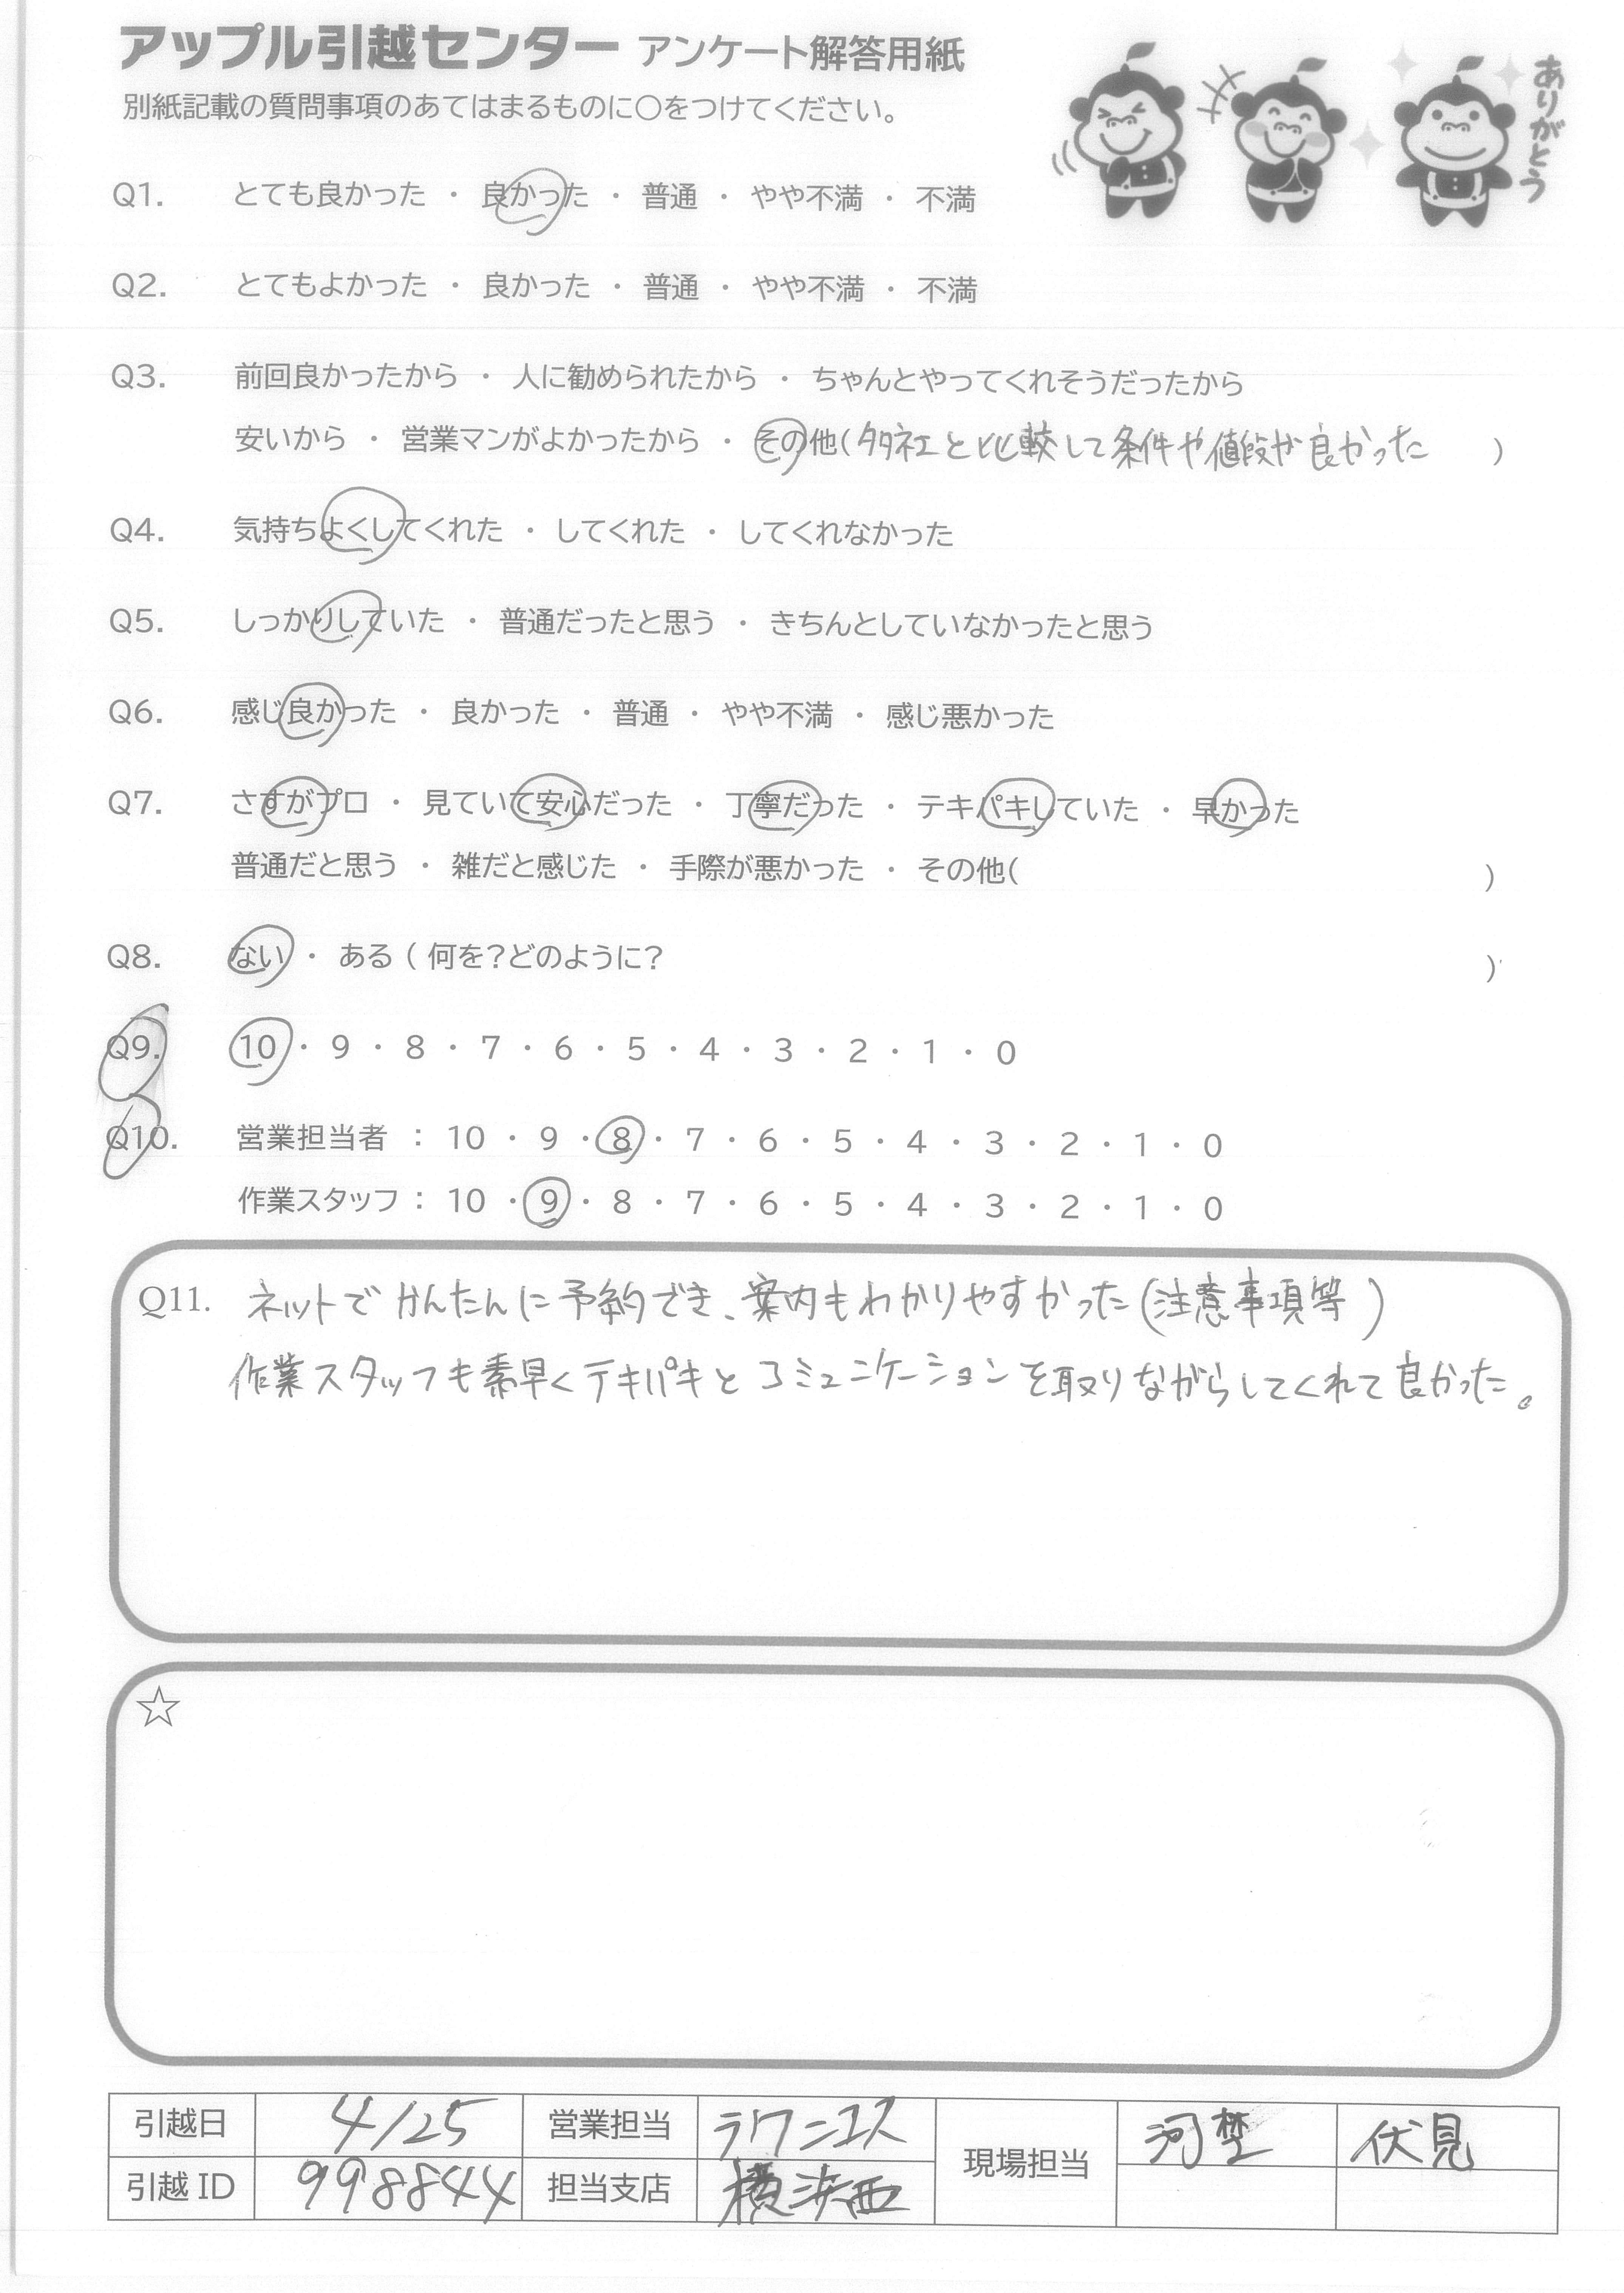 アップル引越センター アンケート解答用紙
別紙記載の質問事項のあてはまるものに○をつけてください。
ありがとう
Q1. とても良かった ・ 良かった ・ 普通 ・ やや不満 ・ 不満
Q2. とてもよかった ・ 良かった ・ 普通 ・ やや不満 ・ 不満
Q3. 前回良かったから ・ 人に勧められたから ・ ちゃんとやってくれそうだったから
安いから ・ 営業マンがよかったから ・ その他( 他社と比較して条件や値段が良かった )
Q4. 気持ちよくしてくれた ・ してくれた ・ してくれなかった
Q5. しっかりしていた ・ 普通だったと思う ・ きちんとしていなかったと思う
Q6. 感じ良かった ・ 良かった ・ 普通 ・ やや不満 ・ 感じ悪かった
Q7. さすがプロ ・ 見ていて安心だった ・ 丁寧だった ・ テキパキしていた ・ 早かった
普通だと思う ・ 雑だと感じた ・ 手際が悪かった ・ その他( )
Q8. ない ・ ある ( 何を?どのように? )
Q9. 10 ・ 9 ・ 8 ・ 7 ・ 6 ・ 5 ・ 4 ・ 3 ・ 2 ・ 1 ・ 0
Q10. 営業担当者 : 10 ・ 9 ・ 8 ・ 7 ・ 6 ・ 5 ・ 4 ・ 3 ・ 2 ・ 1 ・ 0
作業スタッフ : 10 ・ 9 ・ 8 ・ 7 ・ 6 ・ 5 ・ 4 ・ 3 ・ 2 ・ 1 ・ 0
Q11. ネットでかんたんに予約でき、案内もわかりやすかった(注意事項等)
作業スタッフも素早くテキパキとコミュニケーションを取りながらしてくれて良かった。
☆
引越日 4/25 営業担当 現場担当 伏見
引越ID 998844 担当支店 横浜西